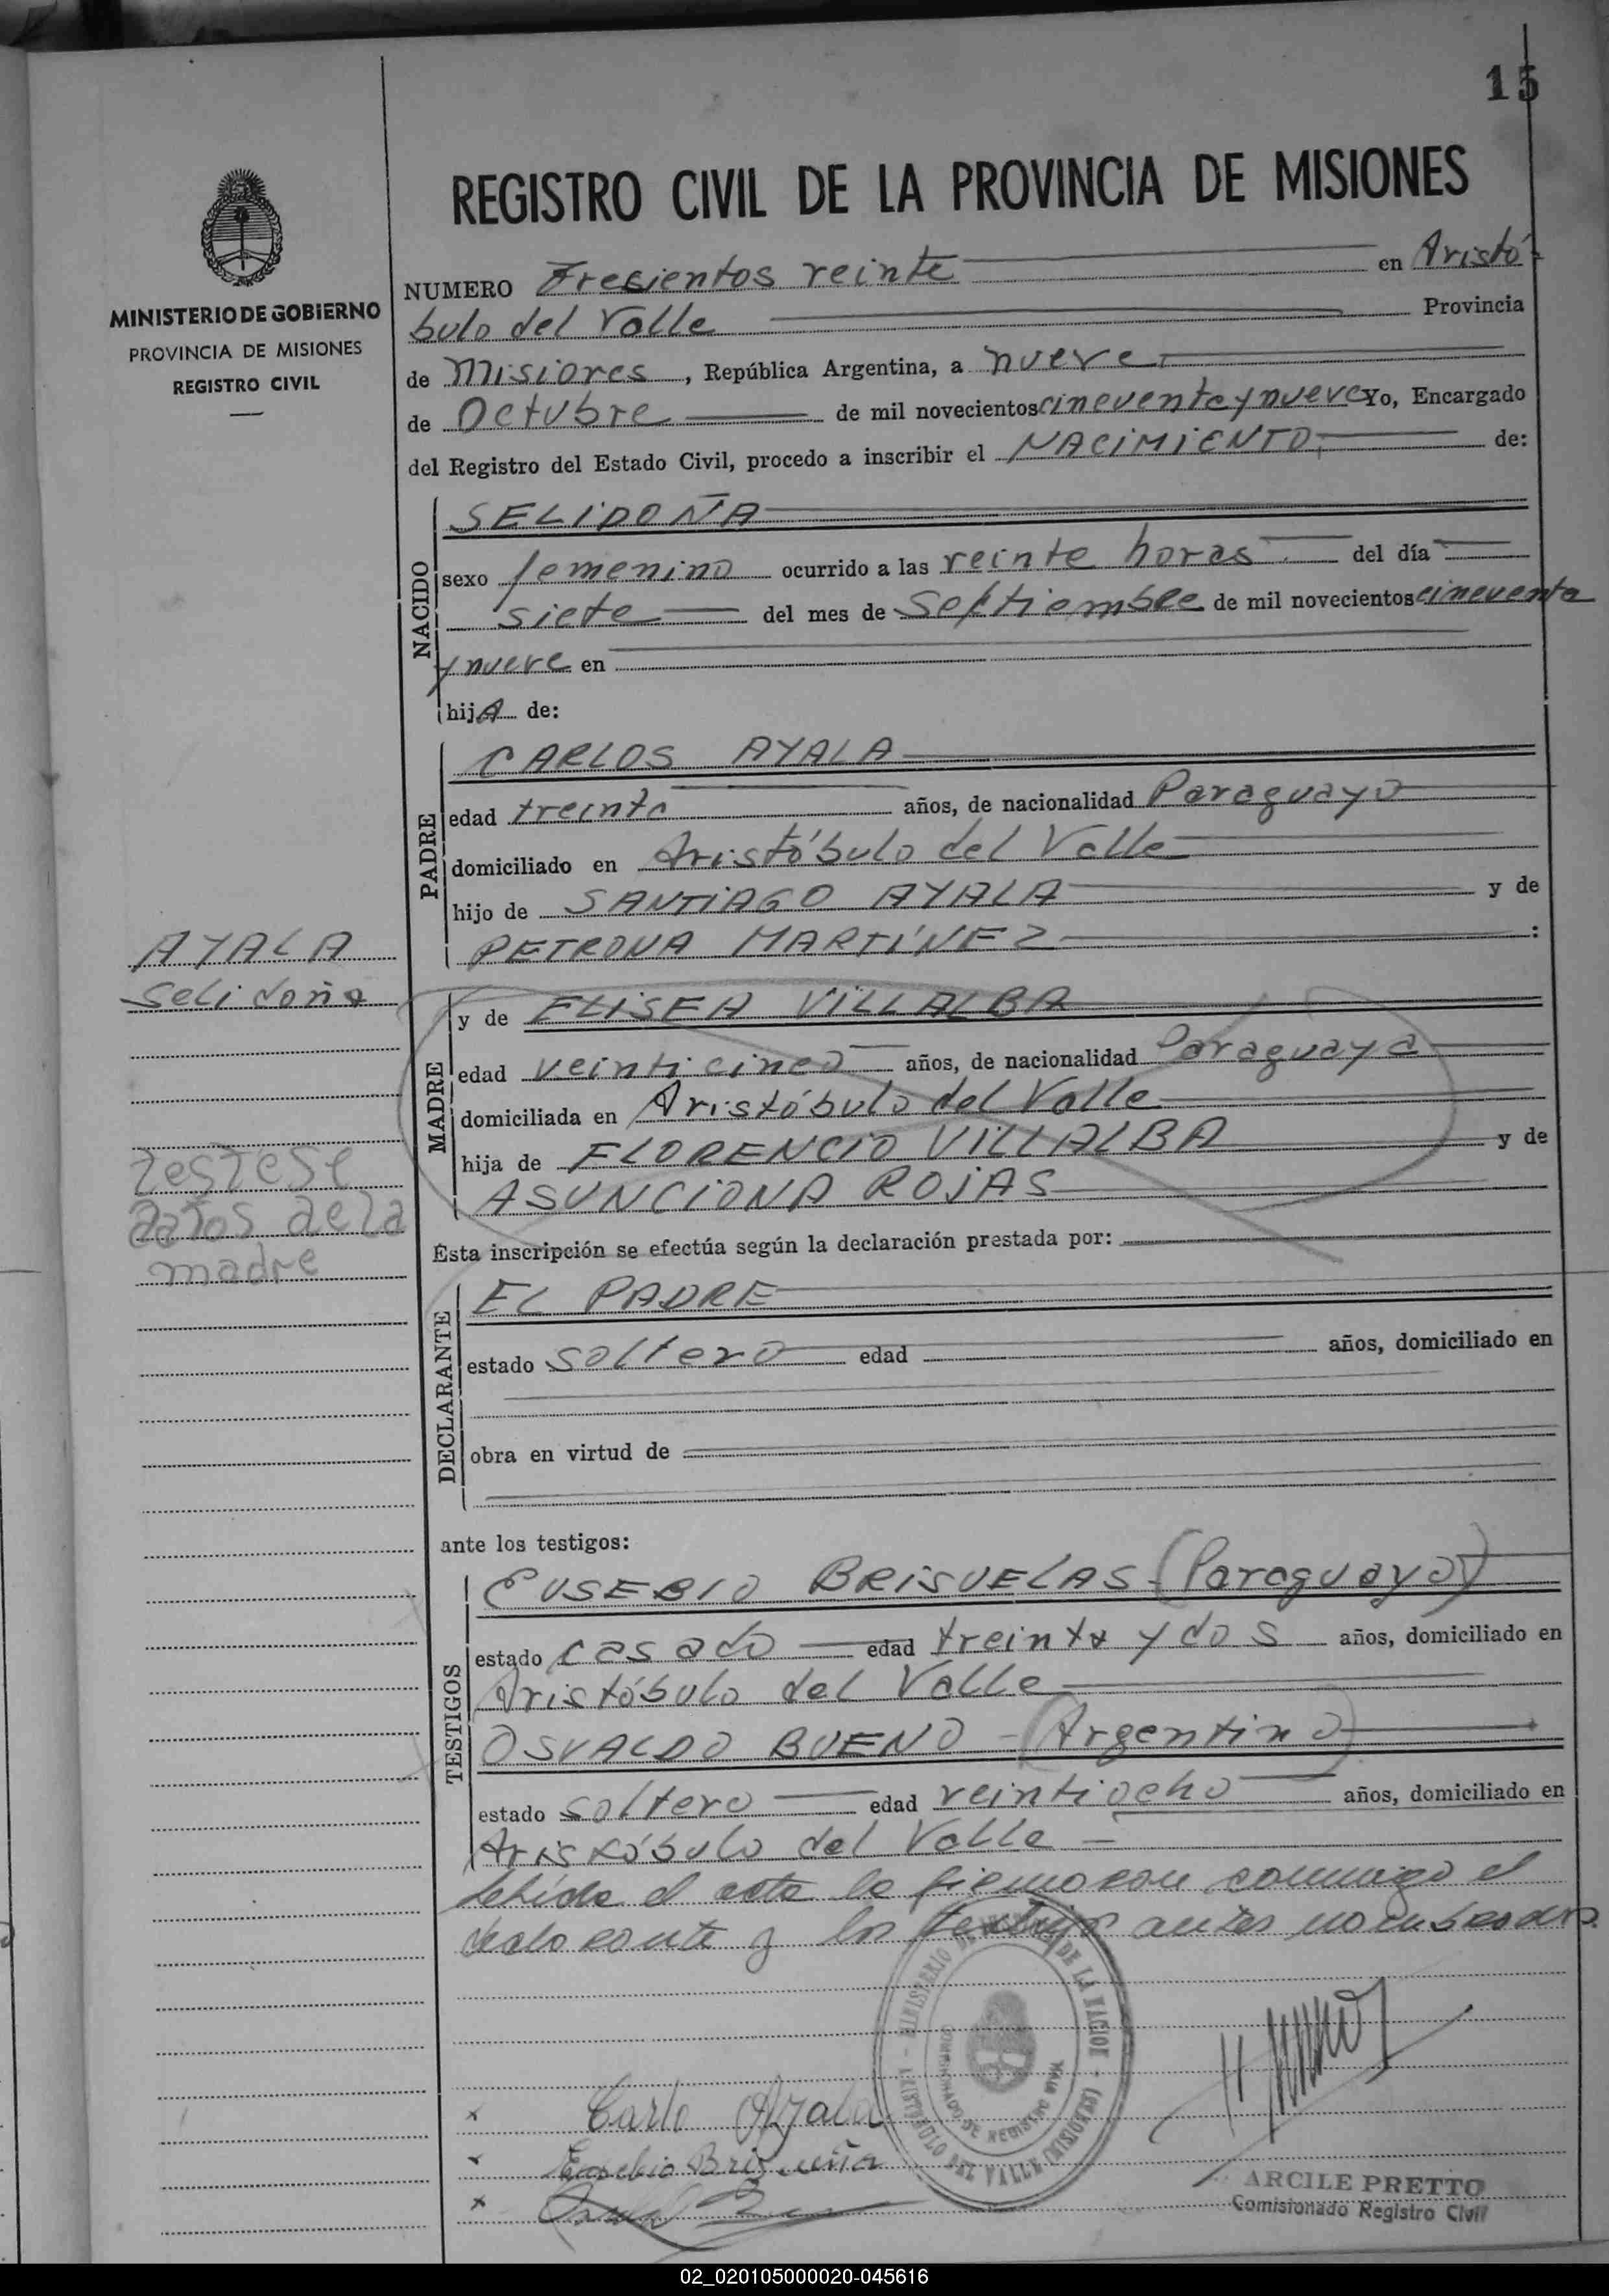 15
REGISTRO CIVIL DE LA PROVINCIA DE MISIONES
MINISTERIO DE GOBIERNO
PROVINCIA DE MISIONES
REGISTRO CIVIL
NUMERO Trecientos veinte en Aristó-
bulo del Valle Provincia
de Misiones, República Argentina, a nueve
de Octubre de mil novecientos cincuenta y nueve Yo, Encargado
del Registro del Estado Civil, procedo a inscribir el NACIMIENTO, de:
NACIDO
SELIDOÑA
sexo femenino ocurrido a las veinte horas del día
siete del mes de Septiembre de mil novecientos cincuenta
y nueve en
hijA de:
PADRE
CARLOS AYALA
edad treinta años, de nacionalidad Paraguayo
domiciliado en Aristóbulo del Valle
hijo de SANTIAGO AYALA y de
PETRONA MARTÍNEZ :
AYALA
Selidoña
MADRE
y de ELISEA VILLALBA
edad veinticinco años, de nacionalidad Paraguaya
domiciliada en Aristóbulo del Valle
hija de FLORENCIO VILLALBA y de
ASUNCIONA ROJAS
Testese
datos de la
madre
Esta inscripción se efectúa según la declaración prestada por:
DECLARANTE
EL PADRE
estado soltero edad años, domiciliado en
obra en virtud de
ante los testigos:
TESTIGOS
EUSEBIO BRISUELAS (Paraguayo)
estado casado edad treinta y dos años, domiciliado en
Aristóbulo del Valle
OSVALDO BUENO - (Argentino)
estado soltero edad veintiocho años, domiciliado en
Aristóbulo del Valle -
Leída el acta la firmaron conmigo el
declarante y los testigos antes nombrados.
MINISTERIO DE DE LA NACION
ARISTOBULO DEL VALLE (MISIONES)
x Carlo Ayala
x Eusebio
x
ARCILE PRETTO
Comisionado Registro Civil
02_020105000020-045616